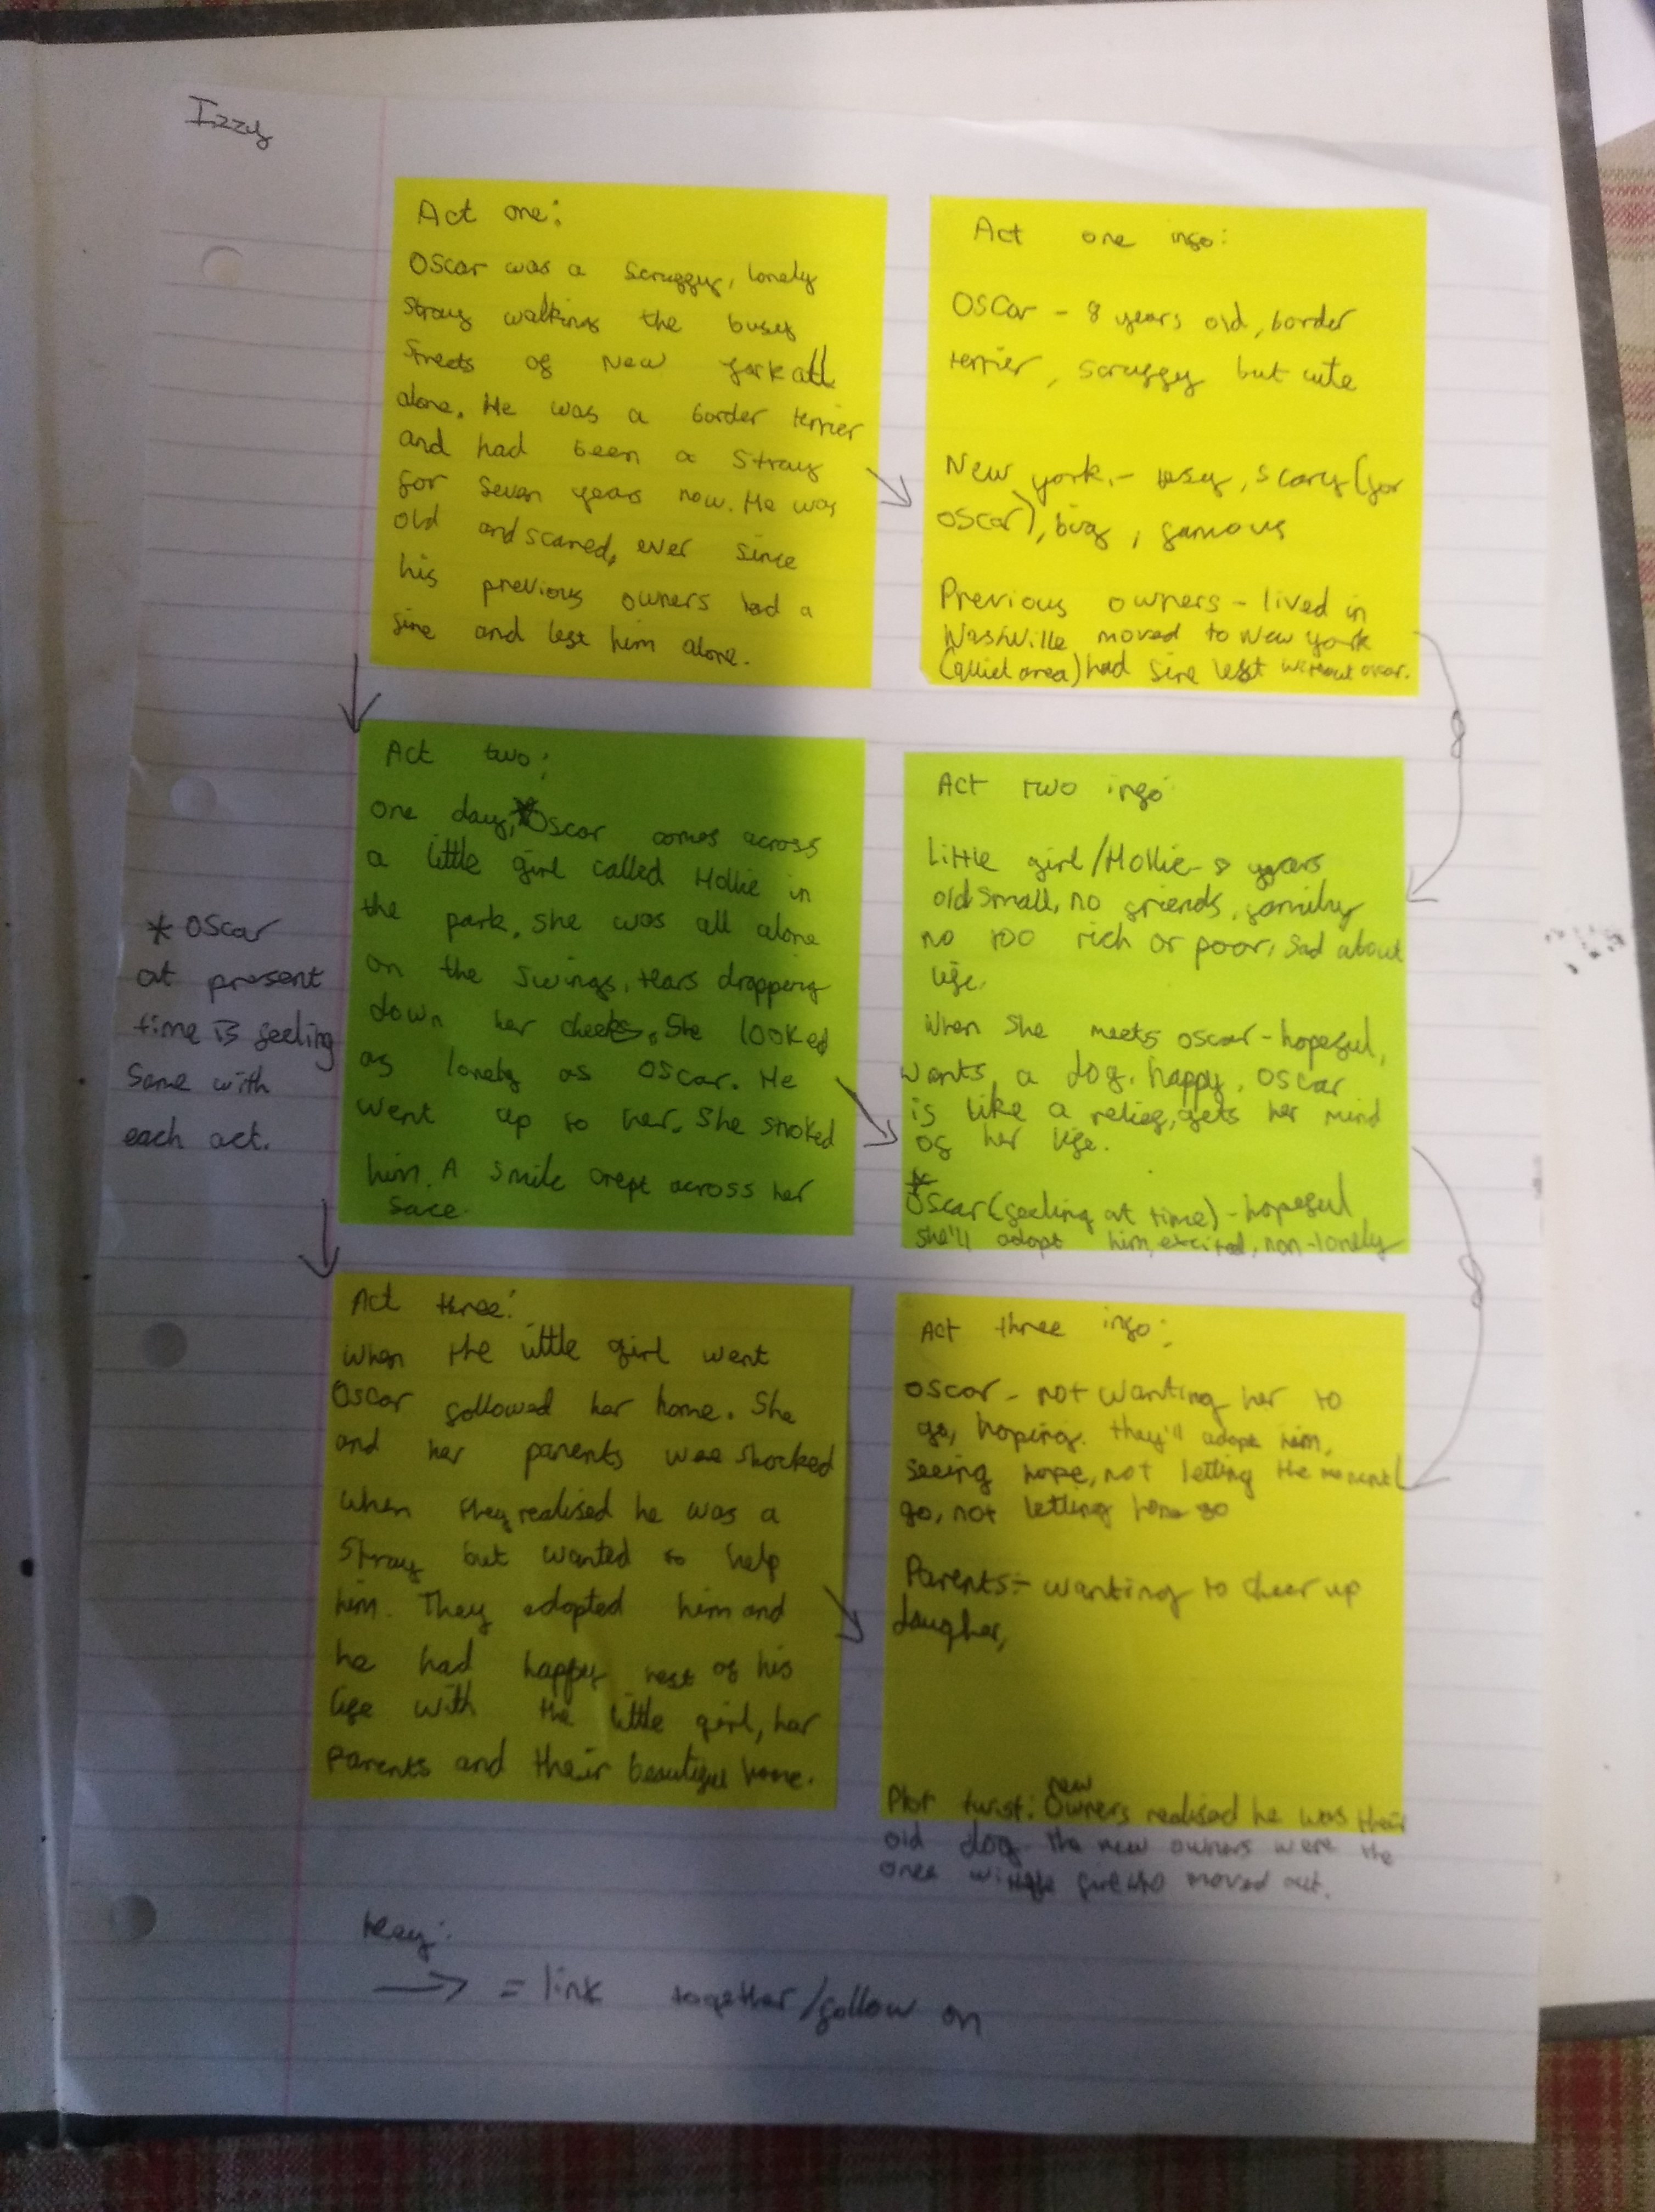 Izzy
Act one:
Oscar was a scruffy, lonely
stray walking the busy
streets of New York all
alone. He was a border terrier
and had been a stray
for seven years now. He was
old and scared, ever since
his previous owners had a
fire and left him alone.
Act one info:
Oscar - 8 years old, border
terrier, scruffy but cute
New york - busy, scary (for
oscar), big, famous
Previous owners - lived in
Nashville moved to New York
(quiet area) had fire left without oscar.
Act two:
one day, *Oscar comes across
a little girl called Hollie in
the park, she was all alone
on the swings, tears dropping
down her cheeks. She looked
as lonely as Oscar. He
went up to her. She stroked
him. A smile crept across her
face.
Act two info
Little girl/Hollie - 8 years
old small, no friends, family
no too rich or poor, sad about
life.
When she meets oscar - hopeful,
wants a dog, happy. Oscar
is like a relief, gets her mind
of her life.
*
Oscar (feeling at time) - hopeful
she'll adopt him, excited, non-lonely
* Oscar
at present
time is feeling
same with
each act.
Act three:
When the little girl went
Oscar followed her home. She
and her parents were shocked
when they realised he was a
stray but wanted to help
him. They adopted him and
he had happy rest of his
life with the little girl, her
parents and their beautiful home.
Act three info:
Oscar - not wanting her to
go, hoping they'll adopt him,
seeing hope, not letting the moment
go, not letting go
Parents:- wanting to cheer up
daugher,
new
Plot twist: Owners realised he was their
old dog the new owners were the
ones fire who moved out.
Key:
→ = link together/follow on